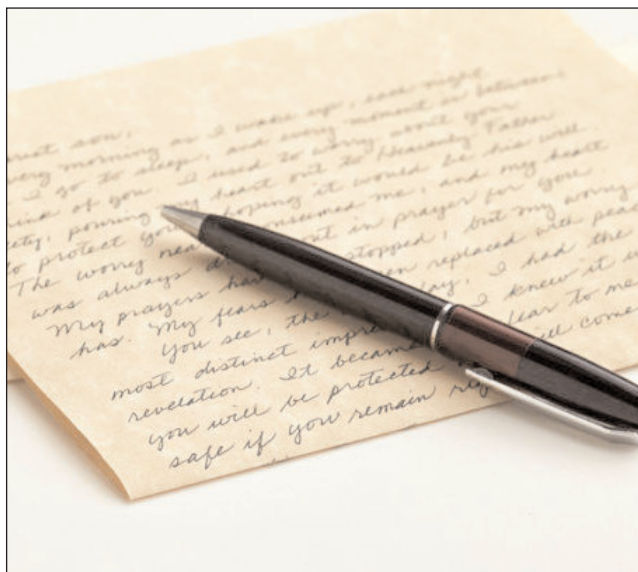 son,
morning as I wake up, each night
I go to sleep, and every moment in between
of you. I used to worry about your
pouring my heart out to Heavenly Father
to protect you, hoping it would be his will.
The worry consumed me, and my heart
was always in prayer for you.
My prayers stopped, but my worry
has. My fears replaced with peace
You see, the I had the
most distinct I knew it
revelation. It became to me
you will be protected will come
safe if you remain